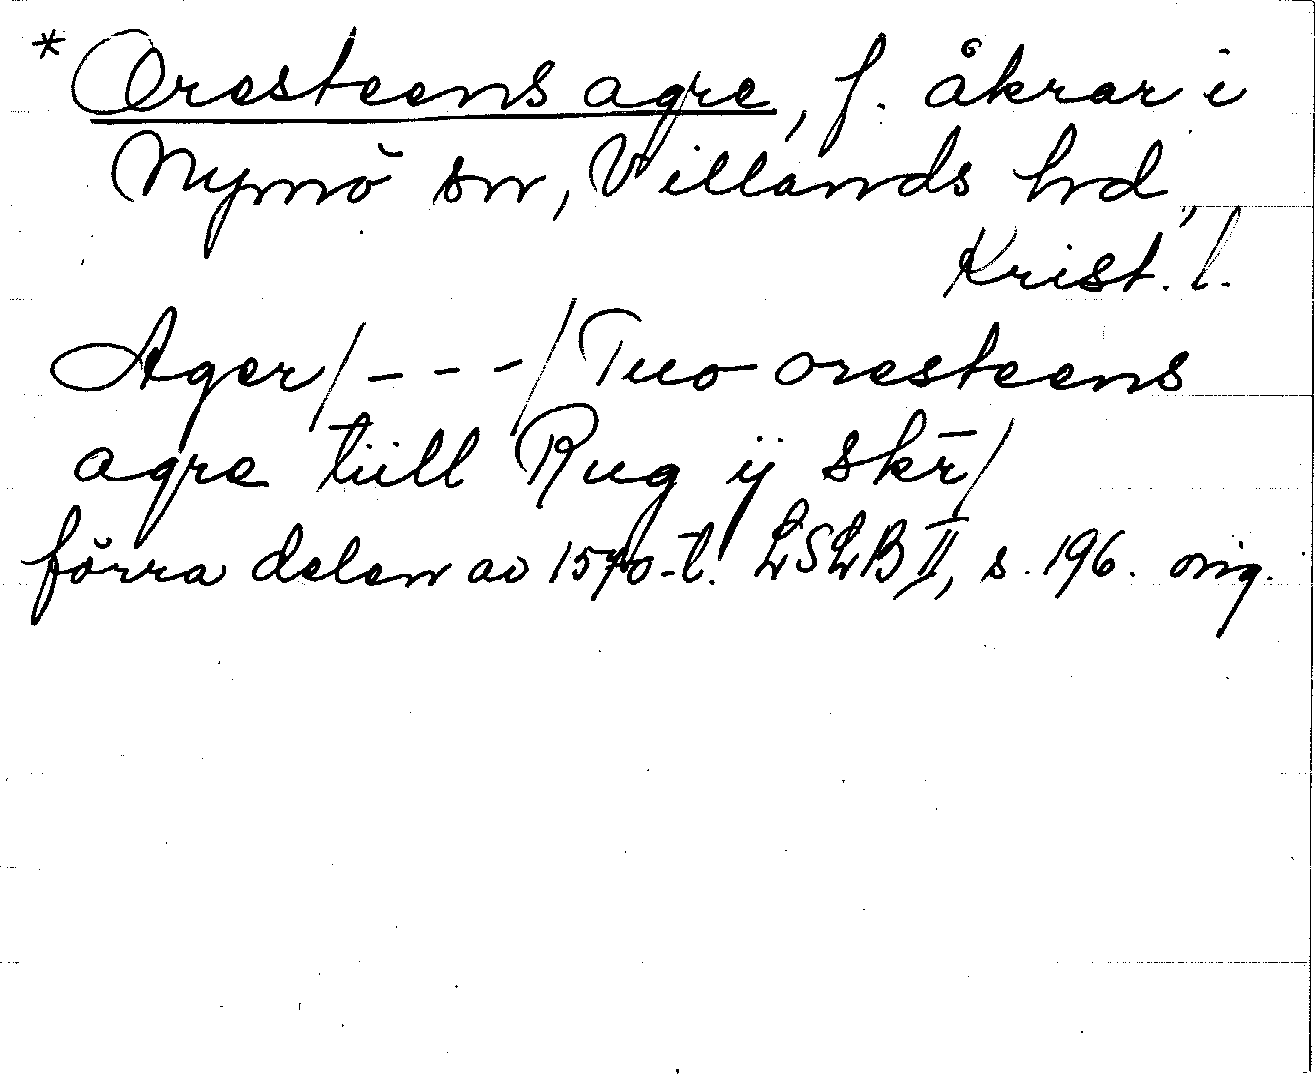 * Oresteens agre, f. åkrar i
Nymö sn, Villands hd,
Krist. l.
Ager/ - - - / Tuo oresteens
agre tiill Rug ij skr̄/
förra delen av 1570-t. LSLB II, s. 196. orig.